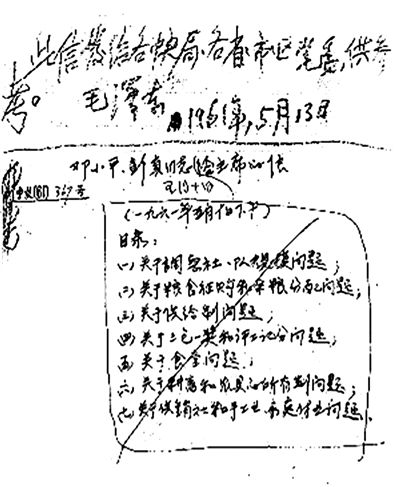 此信发给各中央局,各省、市、区党委,供参
考。
毛泽东
1961年,5月13日
邓小平、彭真同志给主席的信
五月十日
中发(61)367号
(一九六一年五月十日下午)
目录:
(一)关于调整社、队规模问题;
(二)关于粮食征购和余粮分配问题;
(三)关于供给制问题;
(四)关于三包一奖和评工记分问题;
(五)关于食堂问题;
(六)关于耕畜和农具的所有制问题;
(七)关于供销社和手工业、家庭付业问题